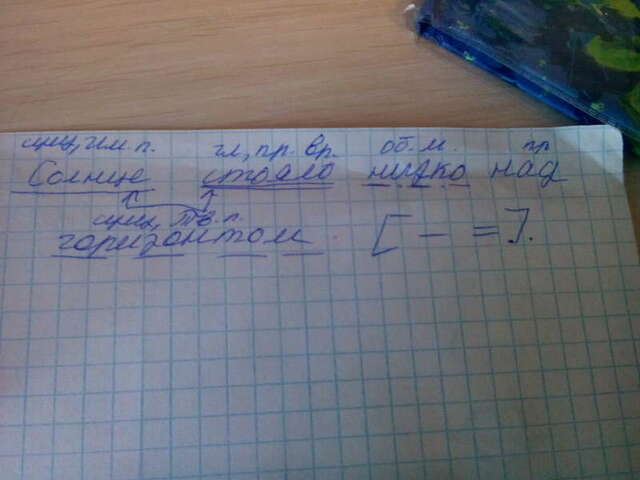 сущ, им. п. гл, пр. вр. об. м. пр
Солнце стояло низко над
сущ, Тв. п.
горизонтом. [ — = ].